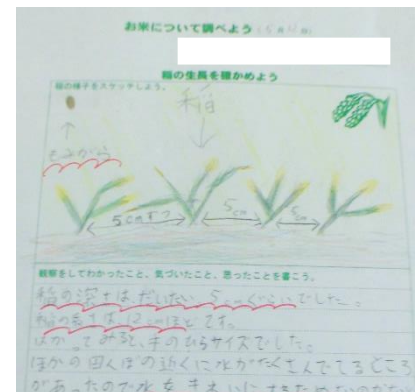 お米について調べよう(5月 日)
稲の生長を確かめよう
稲の様子をスケッチしよう。
稲
もみがら
5cmずつ
5cm
5cm
観察をしてわかったこと、気づいたこと、思ったことを書こう。
稲の深さは、だいたい5cmぐらいでした。
稲の長さは12cmほどです。
はかってみると、手のひらサイズでした。
ほかの田んぼの近くに水がたくさんでてるところ
があったので水をきれいにするためなのかな